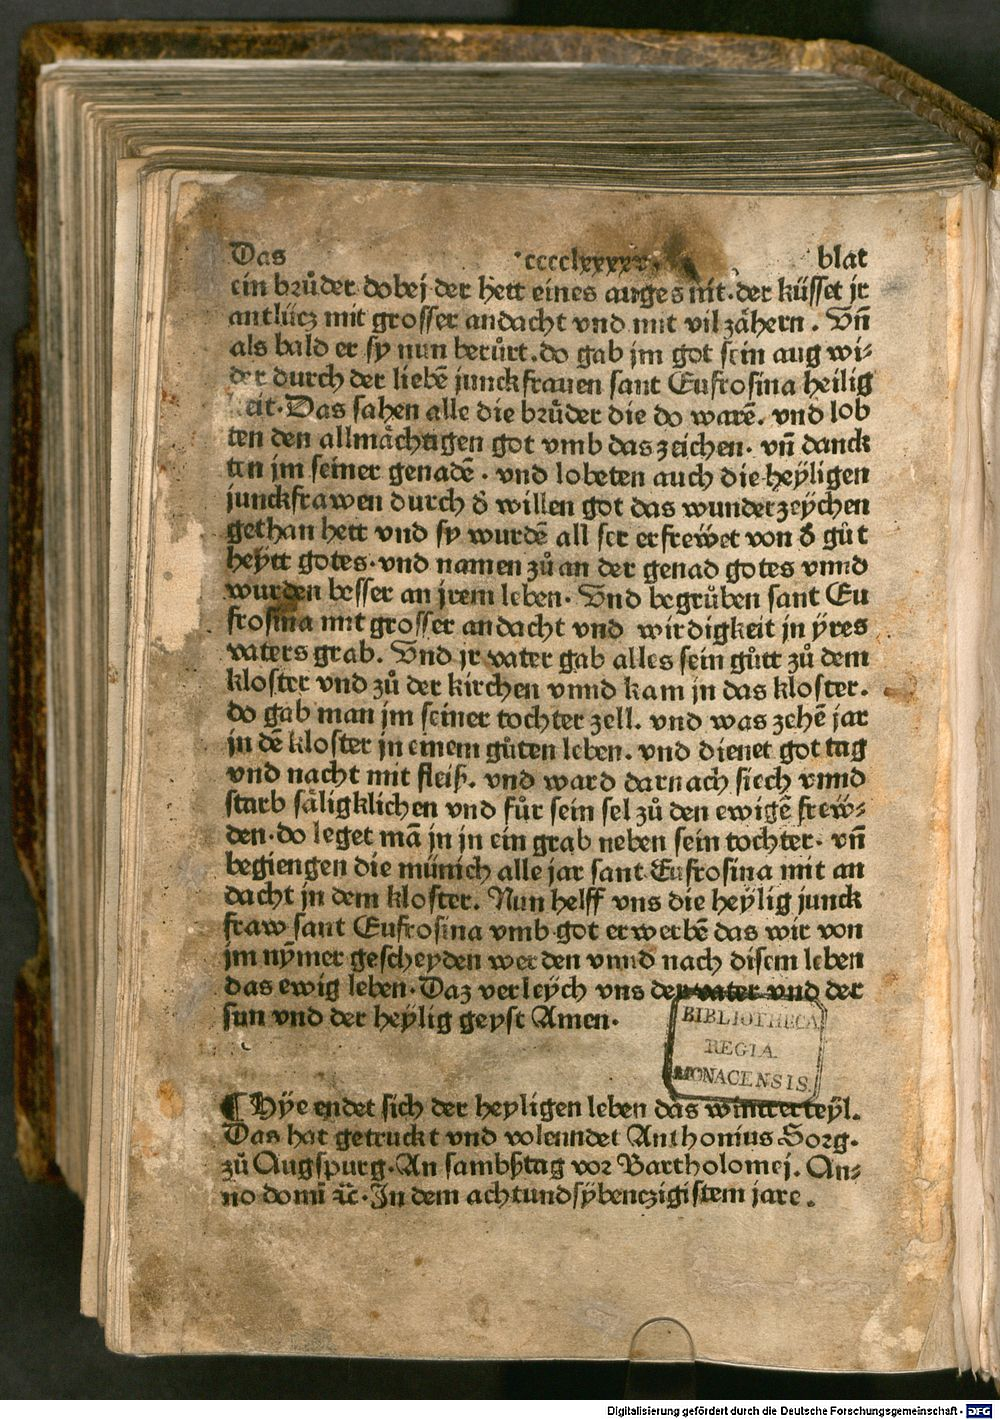 Das cccclxxxxv. blat
ein brůder dobej der hett eines auges nit. der küsset jr
antlücz mit grosser andacht vnd mit vil zähern. Vn̄
als bald er sy nun berůrt. do gab jm got sein aug wi⸗
der durch der liebē junckfrauen sant Eufrosina heilig
keit. Das sahen alle die brůder die do warē. vnd lob
ten den allmächtigen got vmb das zeichen. vn̄ danck
ten jm seiner genadē. vnd lobeten auch die heÿligen
junckfrawen durch d̕ willen got das wunderzeÿchen
gethan hett vnd sy wurdē all ser erfrewet von d̕ gůt
heÿtt gotes. vnd namen zů an der genad gotes vnnd
wurden besser an jrem leben. Vnd begrůben sant Eu
frosina mit grosser andacht vnd wirdigkeit jn ÿres
vaters grab. Vnd jr vater gab alles sein gůtt zů dem
kloster vnd zů der kirchen vnnd kam jn das kloster.
do gab man jm seiner tochter zell. vnd was zehē jar
jn dē kloster jn einem gůten leben. vnd dienet got tag
vnd nacht mit fleiß. vnd ward darnach siech vnnd
starb säligklichen vnd fůr sein sel zů den ewigē frew⸗
den. do leget mā jn jn ein grab neben sein tochter. vn̄
begiengen die münich alle jar sant Eufrosina mit an
dacht jn dem kloster. Nun helff vns die heÿlig junck
fraw sant Eufrosina vmb got erwerbē das wir von
jm nÿmer gescheyden werden vnnd nach disem leben
das ewig leben. Daz verleÿch vns der vater vnd der
sun vnd der heÿlig geyst Amen.
BIBLIOTHECA
REGIA
MONACENSIS.
¶ Hÿe endet sich der heyligen leben das winterteÿl.
Das hat getruckt vnd volenndet Anthonius Sorg.
zů Augspurg. An sambßtag vor Bartholomej. An⸗
no domī ꝛc̄. Jn dem achtundsÿbenczigistem jare.
Digitalisierung gefördert durch die Deutsche Forschungsgemeinschaft - DFG